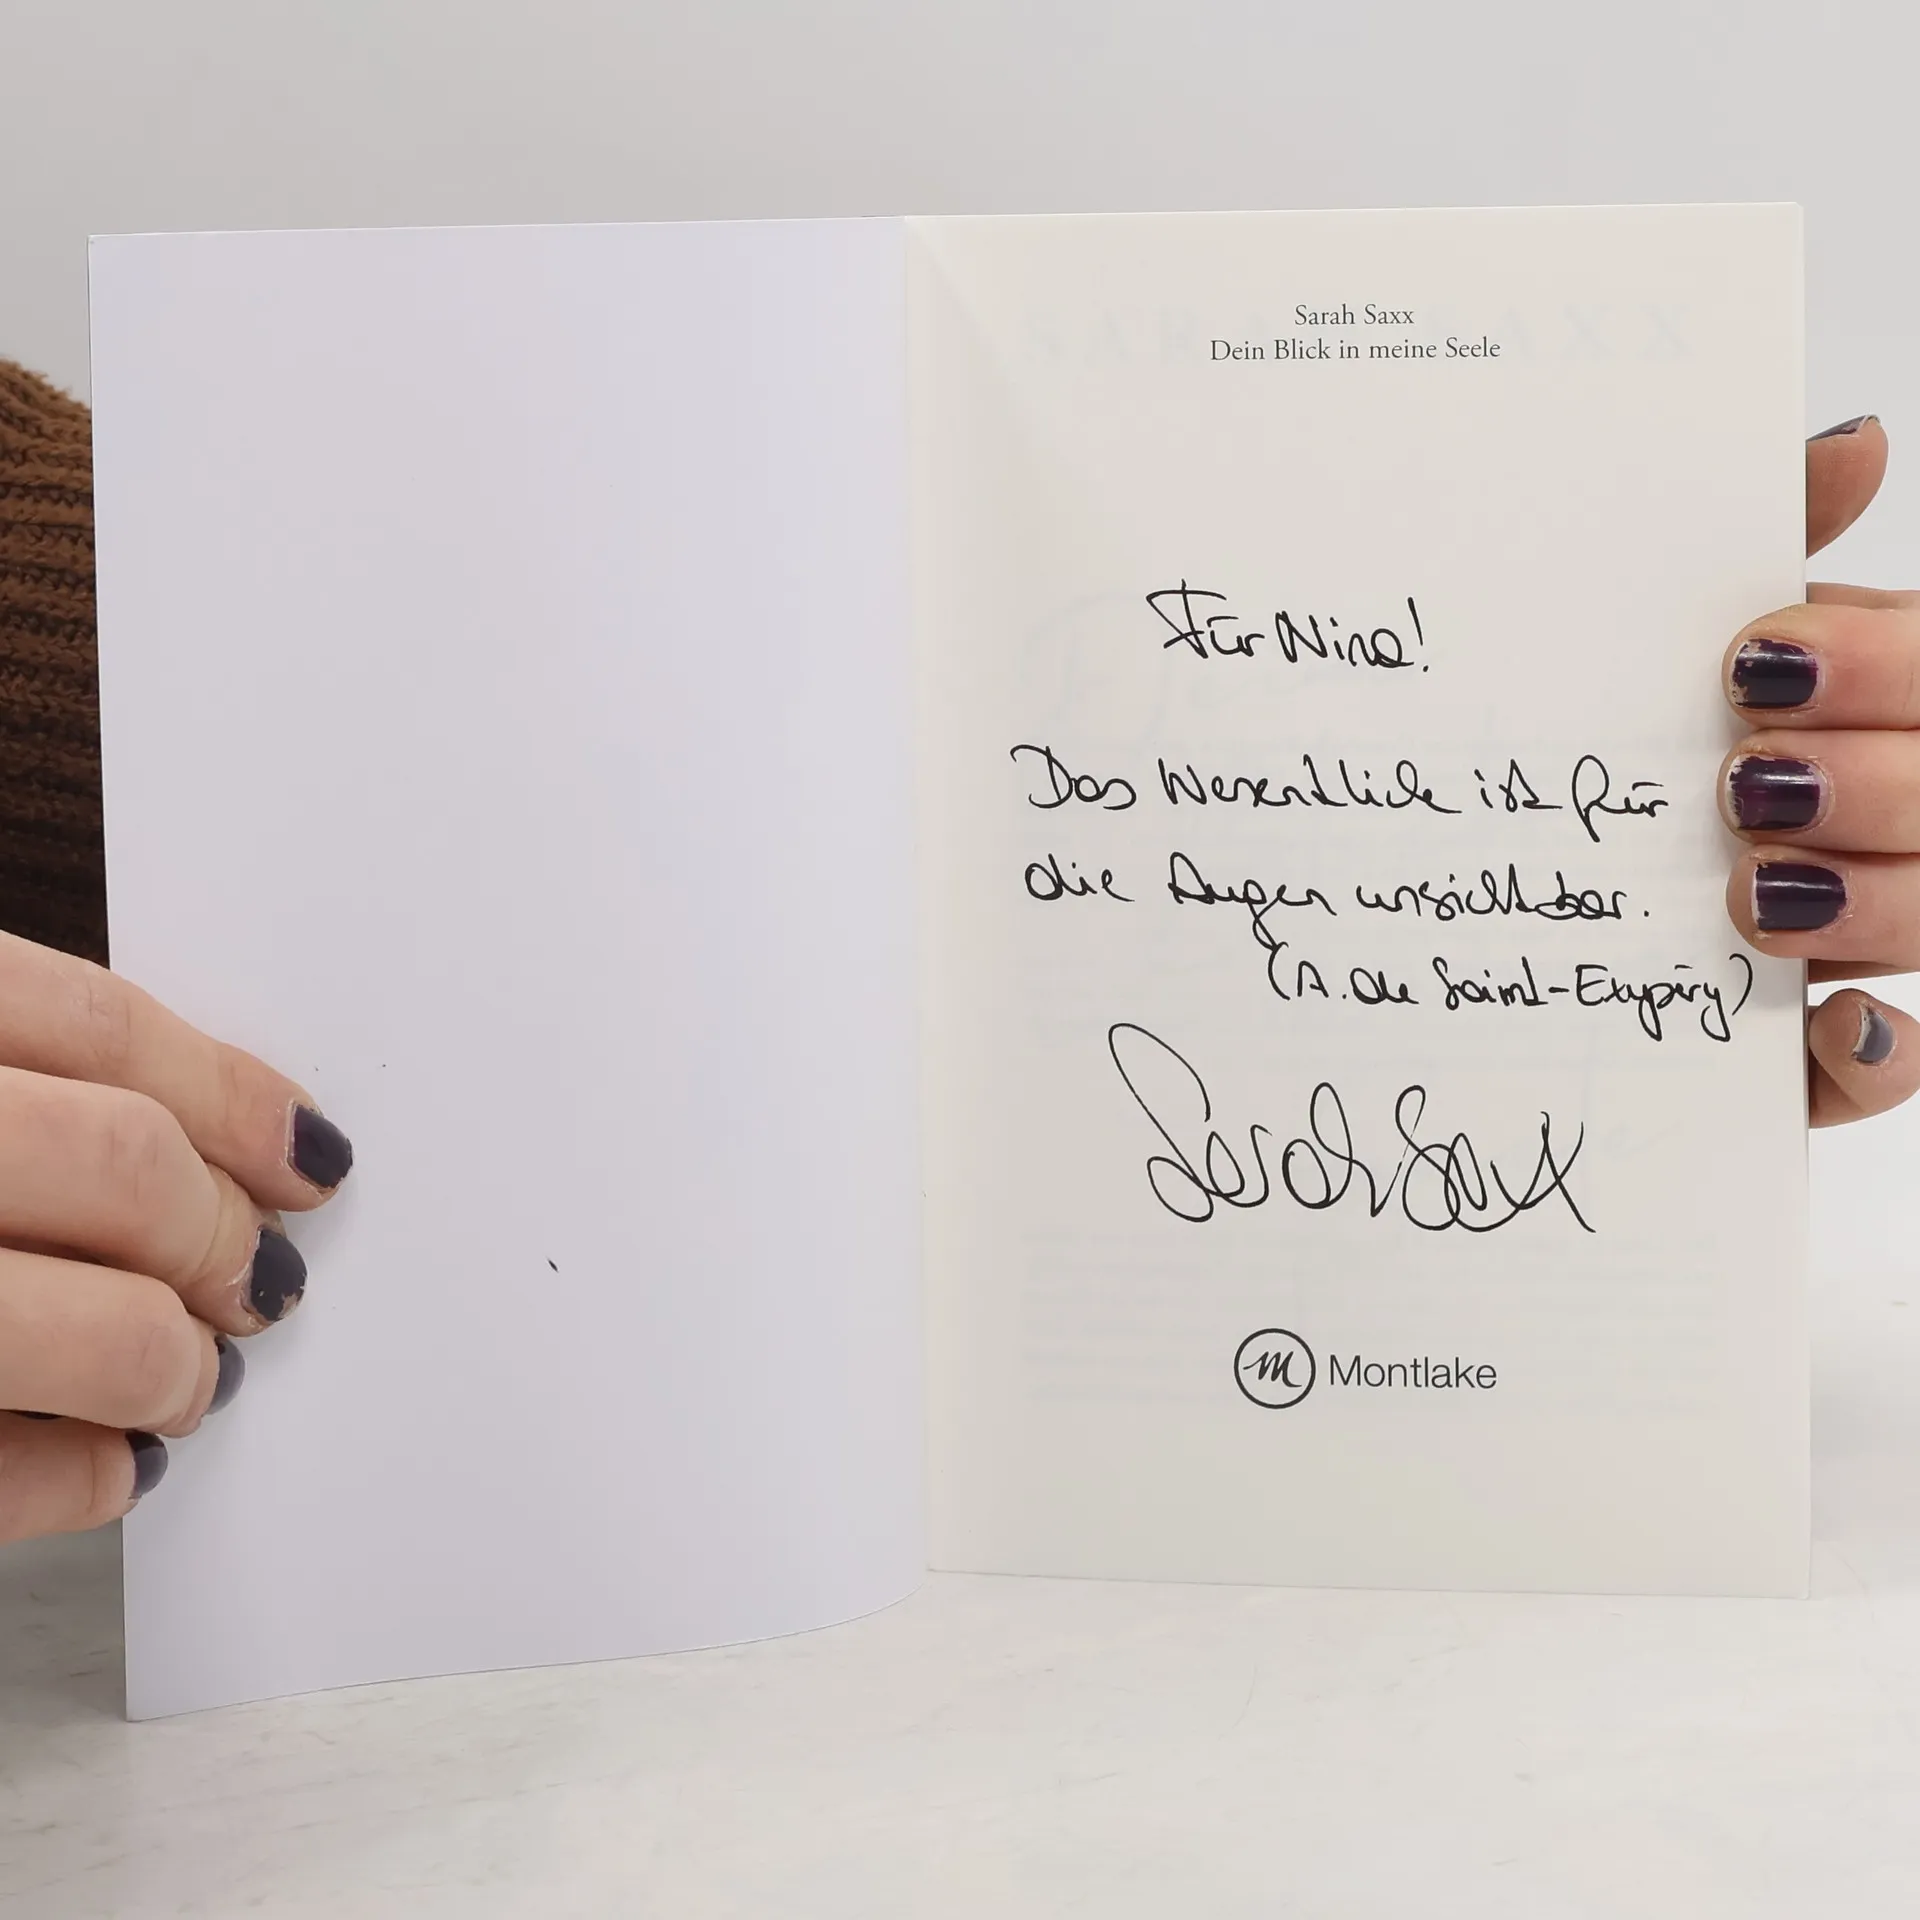 Sarah Saxx
Dein Blick in meine Seele
Für Nina!
Das Wesentliche ist für
die Augen unsichtbar.
(A. de Saint-Exupéry)
Sarah Saxx
m Montlake